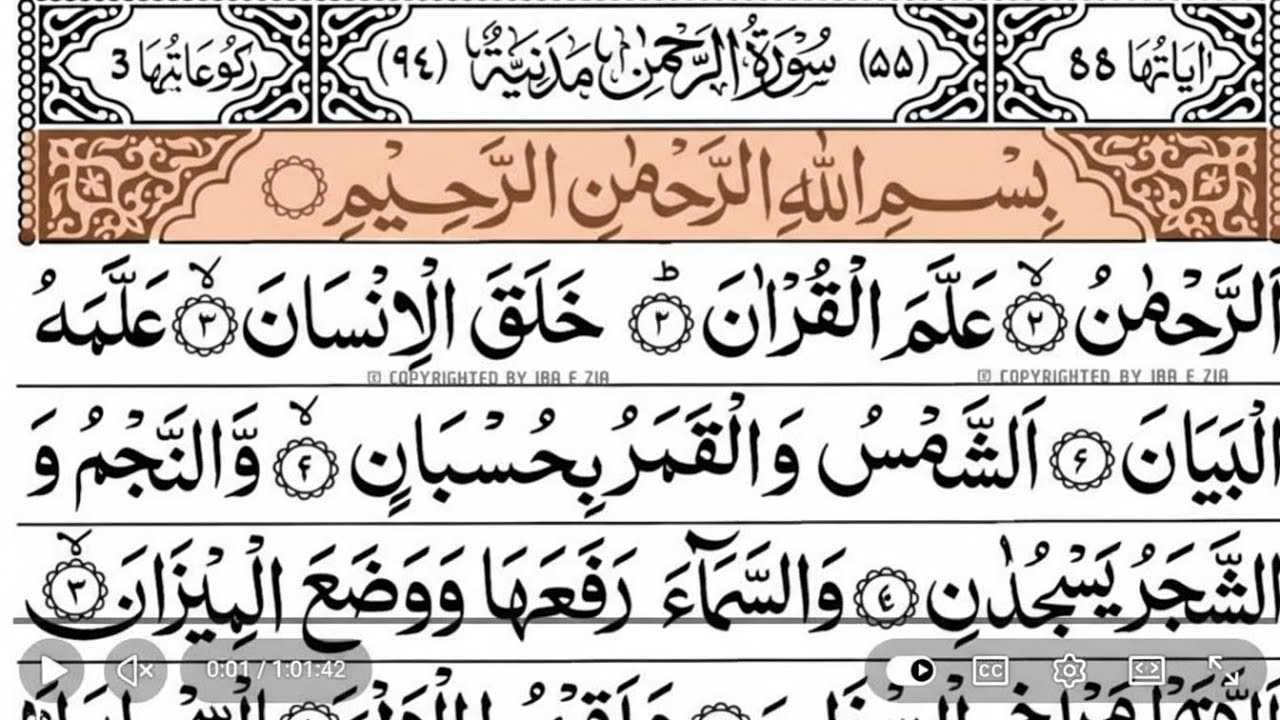 اٰيَاتُهَا ٥٥ (۵۵) سُوْرَةُ الرَّحْمٰنِ مَدَنِيَّةٌ (۹۴) رَكُوْعَاتُهَا 3
بِسْمِ اللهِ الرَّحْمٰنِ الرَّحِيْمِ
اَلرَّحْمٰنُ ۲ عَلَّمَ الْقُرْاٰنَ ۲ خَلَقَ الْاِنْسَانَ ۳ عَلَّمَهُ
© COPYRIGHTED BY IBA E ZIA © COPYRIGHTED BY IBA E ZIA
الْبَيَانَ ۶ اَلشَّمْسُ وَالْقَمَرُ بِحُسْبَانٍ ۴ وَّالنَّجْمُ وَ
الشَّجَرُ يَسْجُدٰنِ ٤ وَالسَّمَآءَ رَفَعَهَا وَوَضَعَ الْمِيْزَانَ ۳
0:01 / 1:01:42
CC